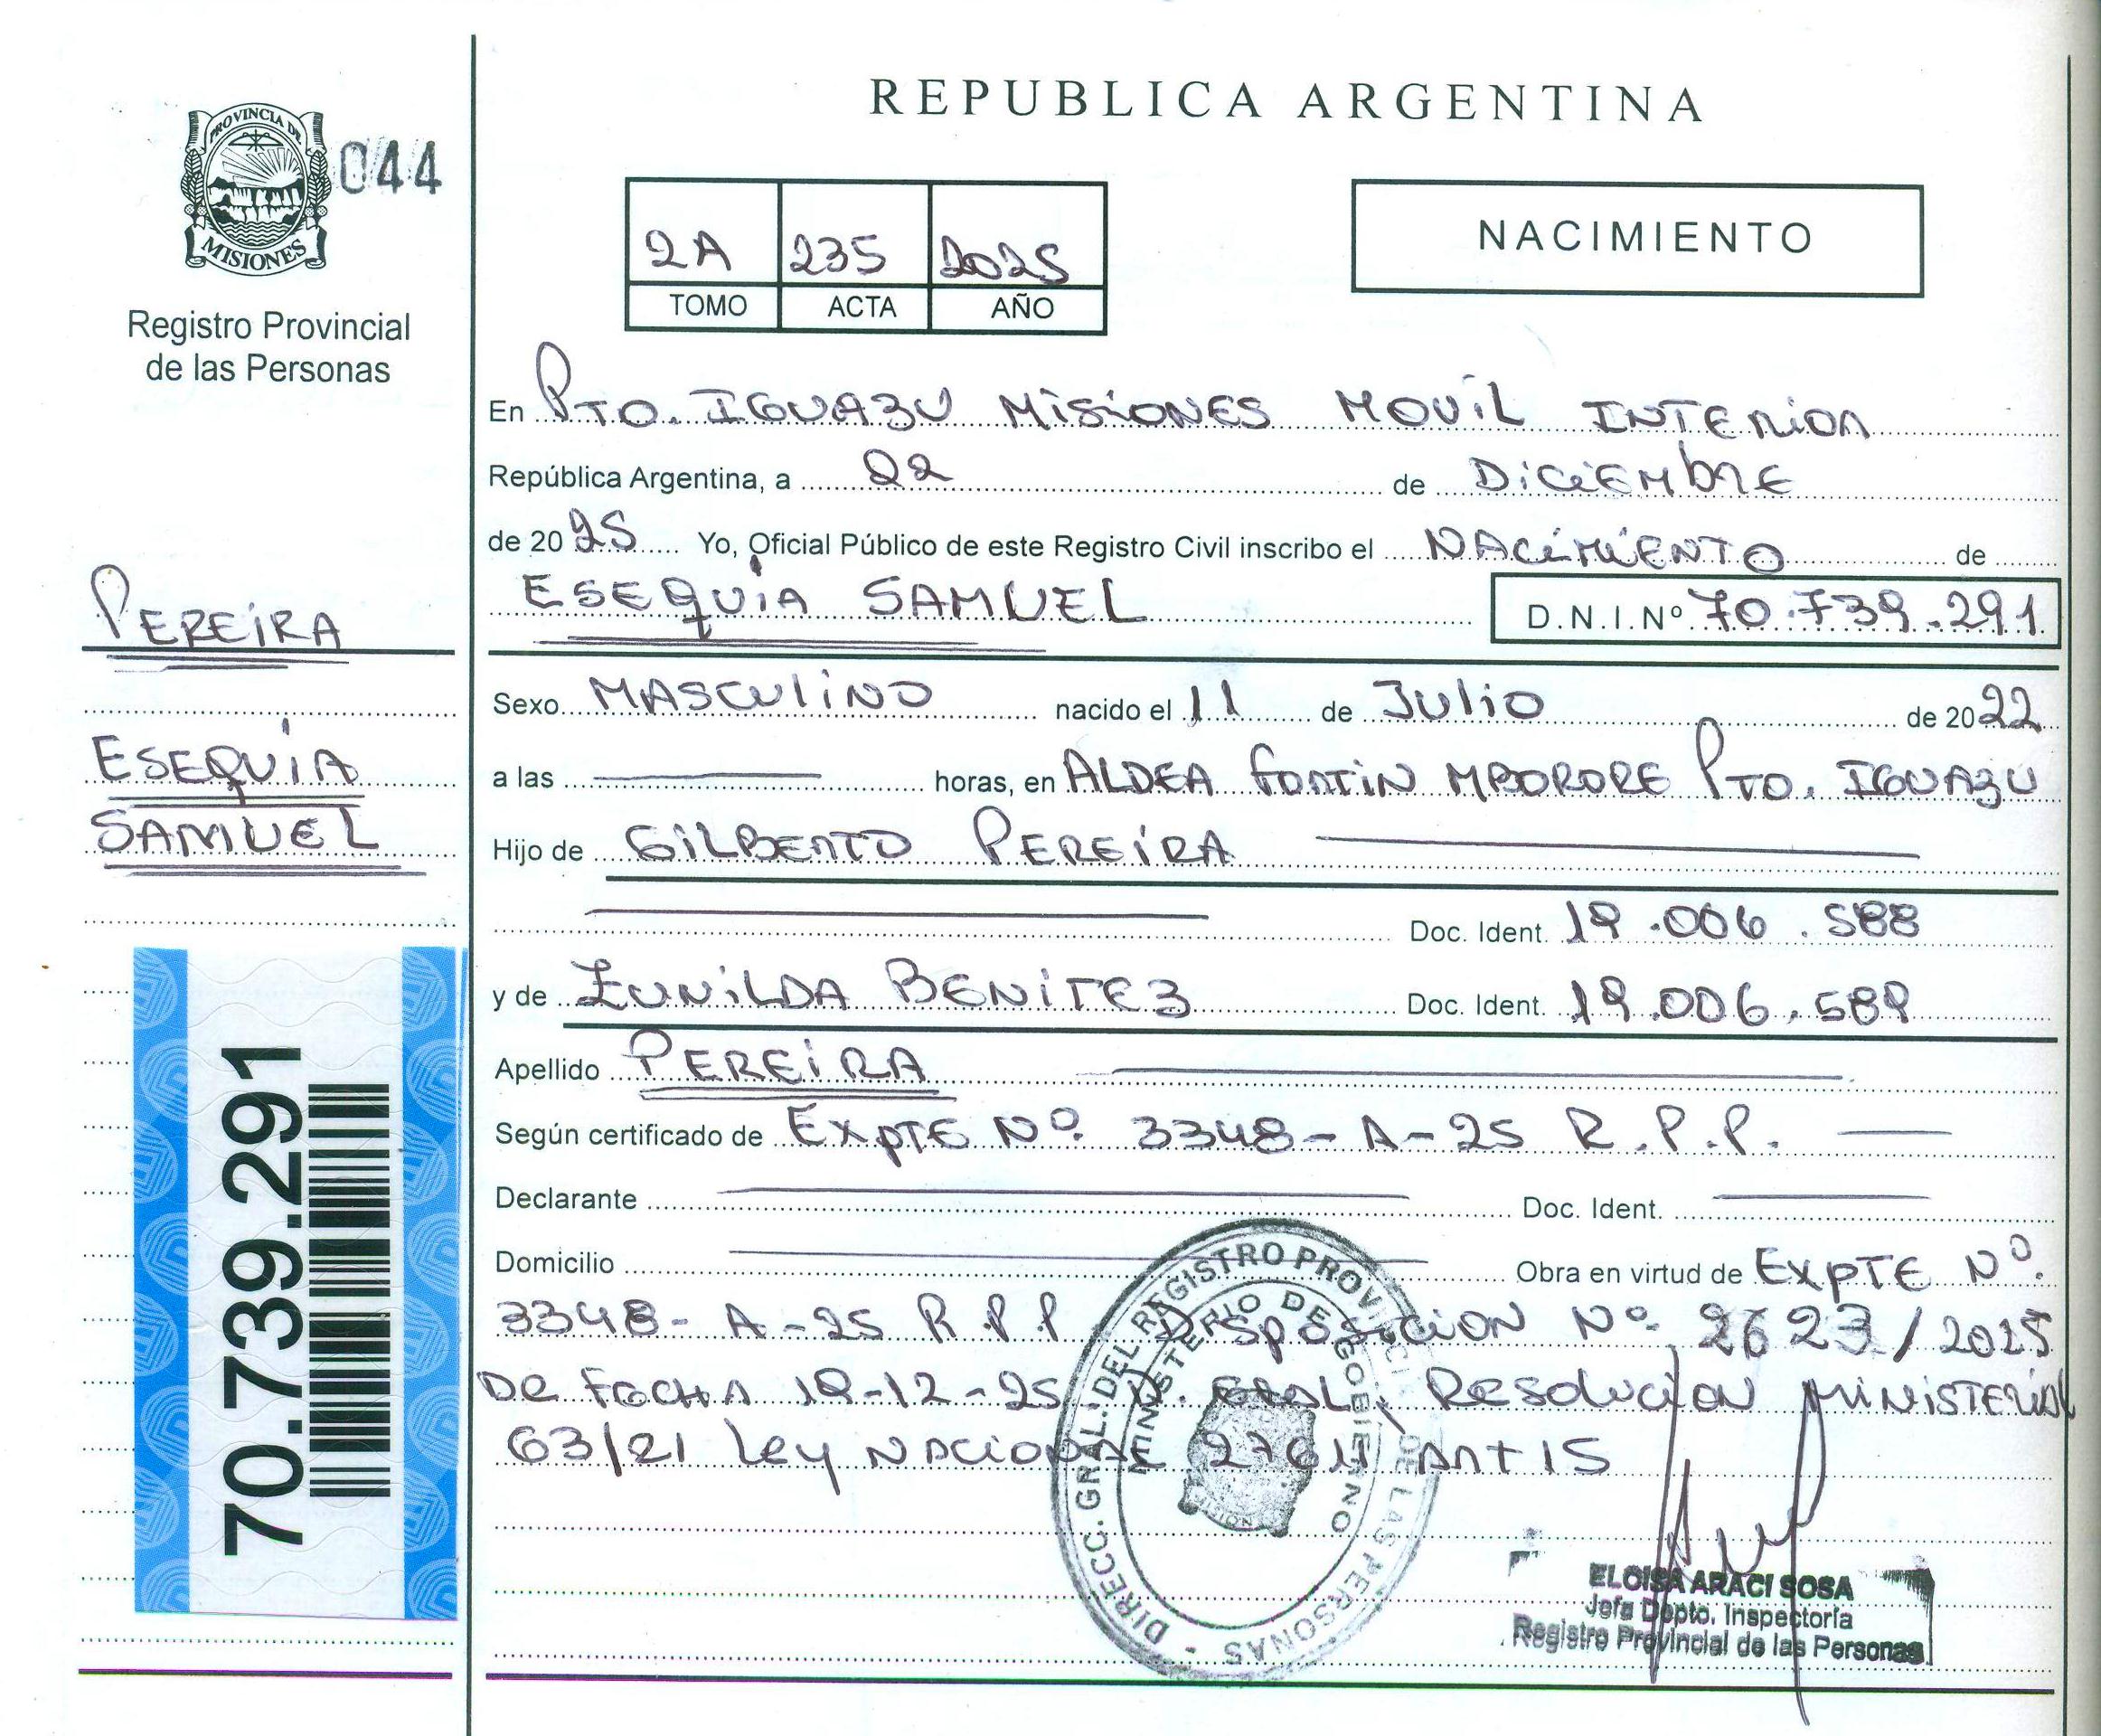 REPUBLICA ARGENTINA
PROVINCIA DE
MISIONES
044
Registro Provincial
de las Personas
2A 235 2025
TOMO ACTA AÑO
NACIMIENTO
En PTO. IGUAZU MISIONES MOVIL INTERIOR
República Argentina, a 22 de DICIEMBRE
de 2025 Yo, Oficial Público de este Registro Civil inscribo el NACIMIENTO de
ESEQUIA SAMUEL D.N.I.Nº 70.739.291
PEREIRA
ESEQUIA
SAMUEL
70.739.291
Sexo MASCULINO nacido el 11 de JULIO de 2022
a las horas, en ALDEA FORTIN MBORORE PTO. IGUAZU
Hijo de GILBERTO PEREIRA
Doc. Ident. 19.006.588
y de ZUNILDA BENITEZ Doc. Ident. 19.006.589
Apellido PEREIRA
Según certificado de EXPTE Nº 3348-A-25 R.P.P.
Declarante Doc. Ident.
Domicilio Obra en virtud de EXPTE Nº
3348-A-25 R.P.P DISPOSICION Nº 2623/2025
DE FECHA 19-12-25 RESOLUCION MINISTERIAL
63/21 LEY NACIONAL ART 15
DIRECC. GRAL. DEL REGISTRO PROVINCIAL DE LAS PERSONAS
MINISTERIO DE GOBIERNO
ELOISA ARACI SOSA
Jefa Dpto. Inspectoría
Registro Provincial de las Personas